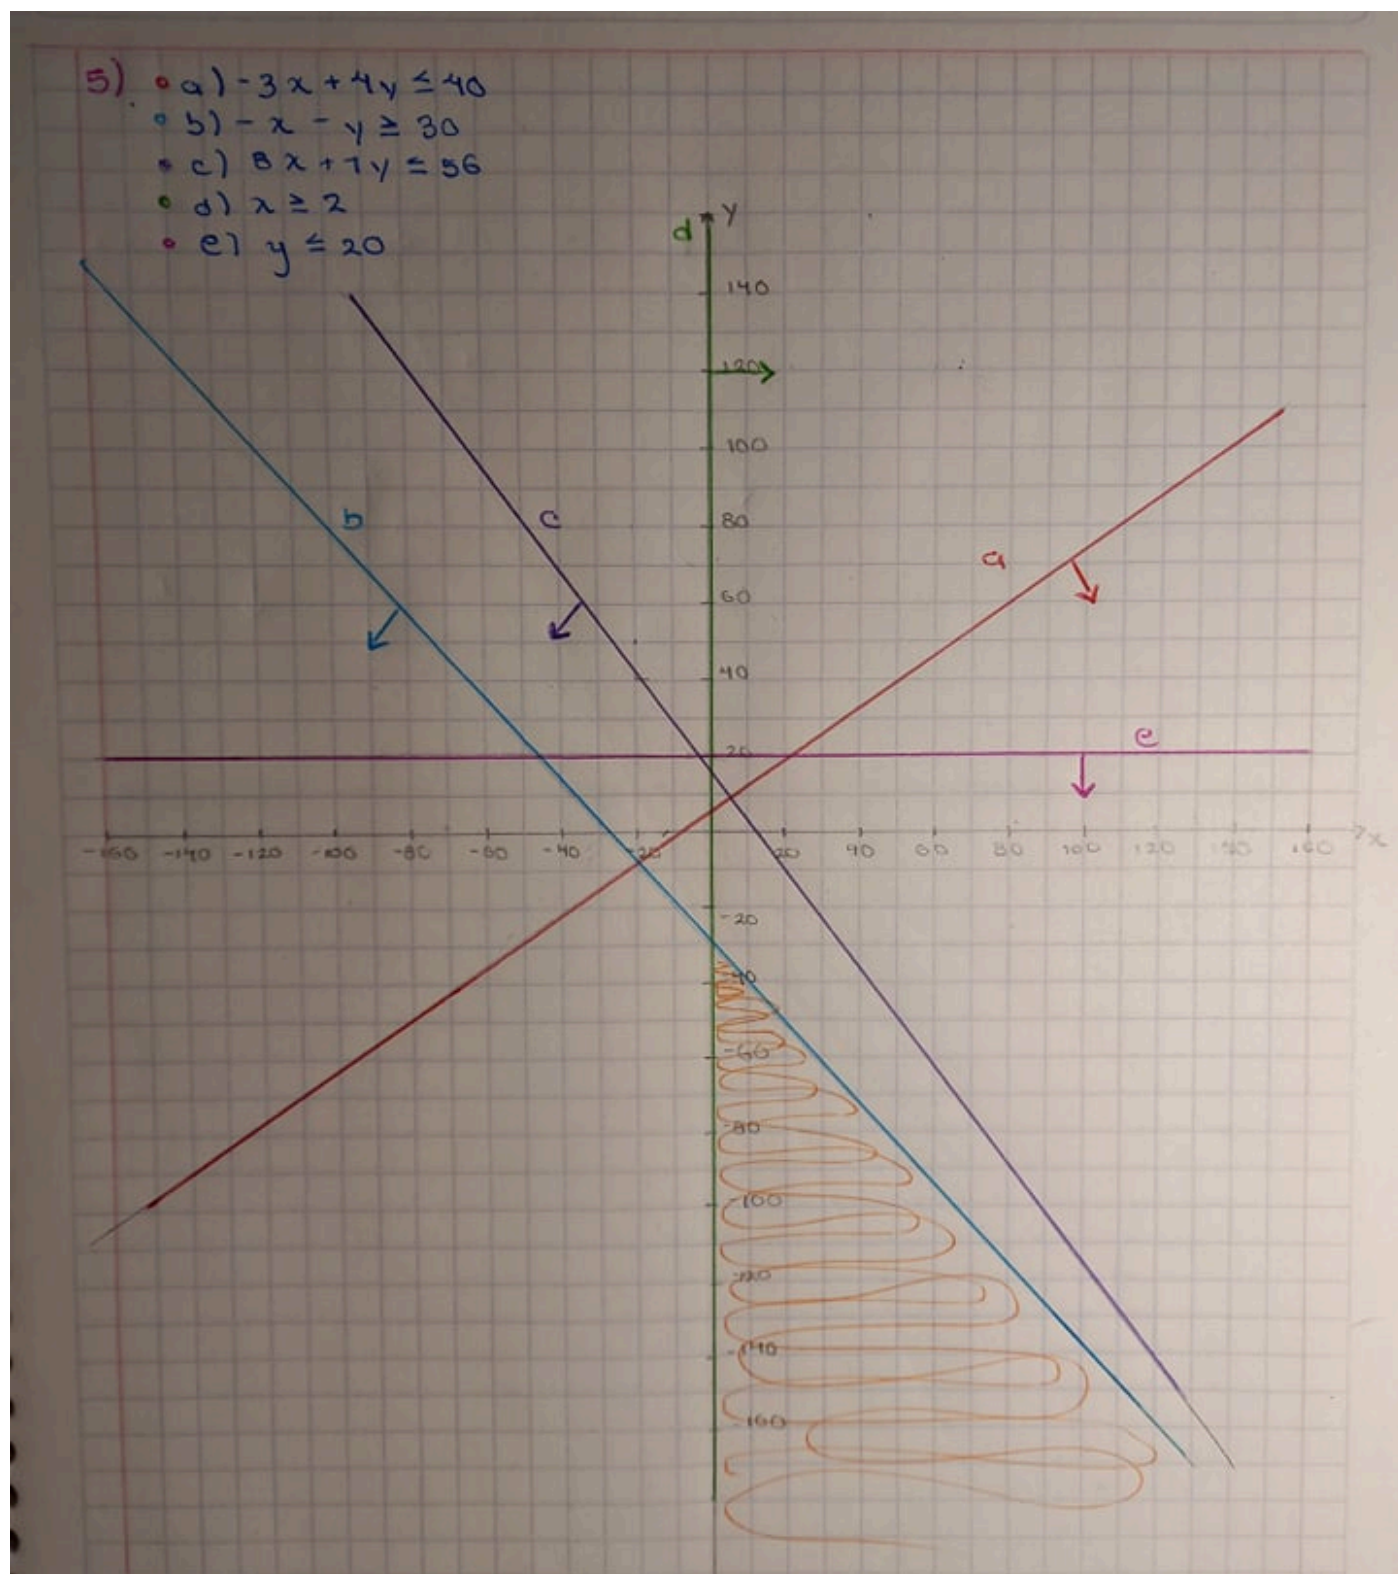 5) • a) -3x + 4y ≤ 40
• b) - x - y ≥ 30
• c) 8x + 7y ≤ 56
• d) x ≥ 2
• e) y ≤ 20
d y
140
120
100
b c 80
a
60
40
e
20
-160 -140 -120 -100 -80 -60 -40 -20 20 40 60 80 100 120 140 160 x
-20
-40
-60
-80
-100
-120
-140
-160